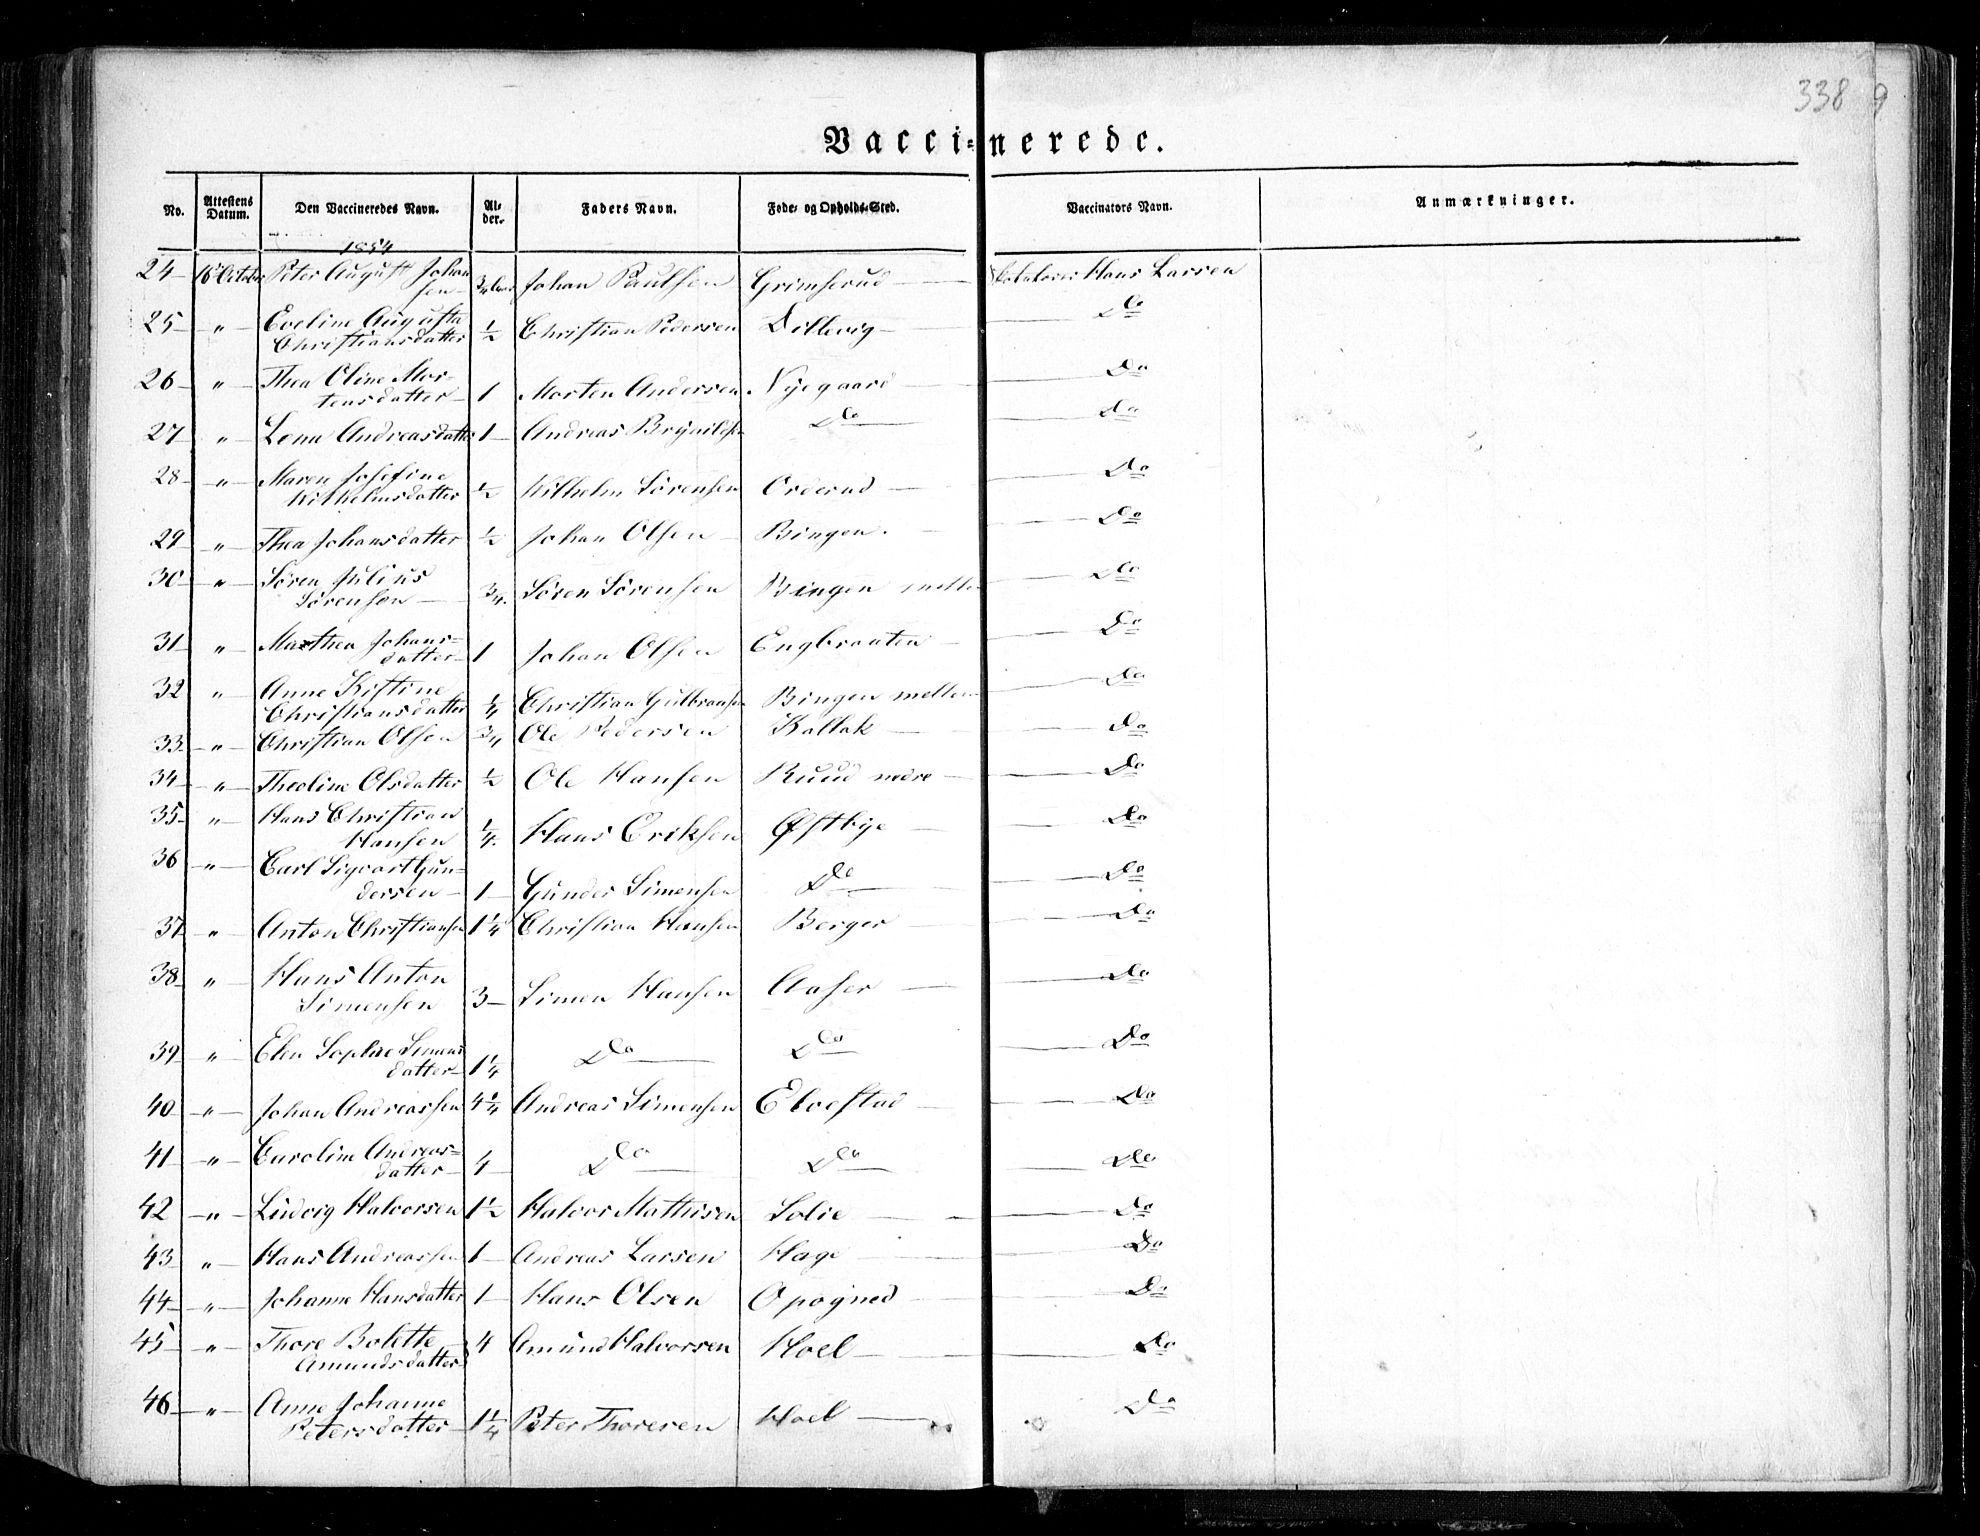 338 9
Vacci-nerede.
No. Attestens Datum. Den Vaccineredes Navn. Al-der. Faders Navn. Føde- og Opholds-Sted. Vaccinators Navn. Anmærkninger.
1854
24 16 October Peter August Johan
sen 3/4 Johan Paulsen Grimserud Hans Larsen
25 " Eveline Augusta
Christiansdatter 1/2 Christian Pedersen Dillevig Do
26 " Thea Oline Mor-
tensdatter 1 Morten Andersen Nyegaard Do
27 " Lena Andreasdatter 1 Andreas Do Do
28 " Maren Josefine
Wilhelmsdatter 1/2 Wilhelm Sørensen Orderud Do
29 " Thea Johansdatter 1/2 Johan Olsen Bingen Do
30 " Søren Julius
Sørensen 3/4 Søren Sørensen Bingen mellem Do
31 " Marthea Johans=
datter 1 Johan Olsen Engbraaten Do
32 " Anne Kistine
Christiansdatter 1/4 Christian Gulbransen Bingen mellem Do
33 " Christian Olsen 3/4 Ole Pedersen Kallak Do
34 " Theoline Olsdatter 1/2 Ole Hansen Ruud nedre Do
35 " Hans Christian
Hansen 1/4 Hans Eriksen Østbye Do
36 " Carl Sigvart Gun=
dersen 1 Gunder Simensen Do Do
37 " Anton Christiansen 1 1/4 Christian Hansen Berger Do
38 " Hans Anton
Simensen 3 Simen Hansen Aaser Do
39 " Elen Sophie Simens
datter 1 1/4 Do Do Do
40 " Johan Andreassen 4 1/4 Andreas Simensen Elvestad Do
41 " Caroline Andreas=
datter 4 Do Do Do
42 " Ludvig Halvorsen 1 1/2 Halvor Mathisen Solie Do
43 " Hans Andreassen 1 Andreas Larsen Hage Do
44 " Johanne Hansdatter 1 Hans Olsen Opogned Do
45 " Thore Bolette
Amundsdatter 4 Amund Halvorsen Hoel Do
46 " Anne Johanne
Petersdatter 1 1/4 Peter Thoresen Hoel Do